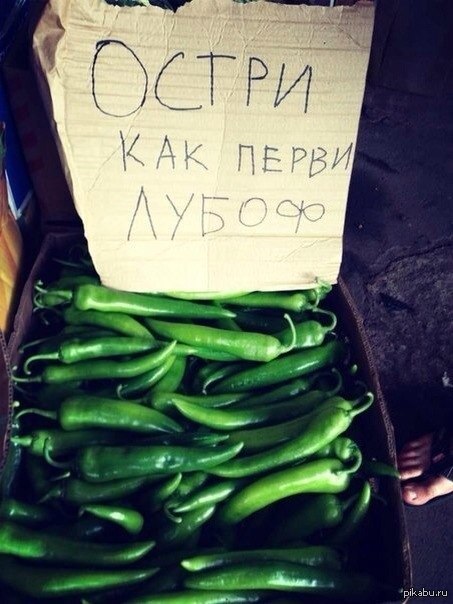 ОСТРИ
КАК ПЕРВИ
ЛУБОФ
pikabu.ru